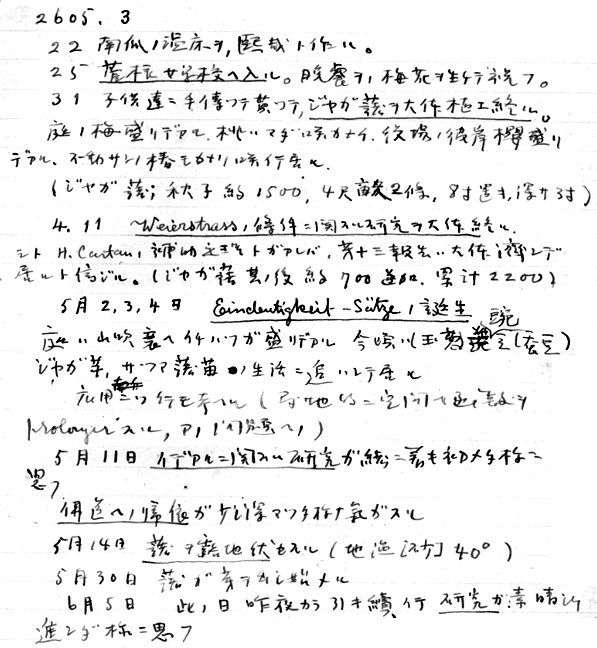 2605. 3
22 南瓜ノ温床ヲ, 熙哉ト作ル。
25 菅根女学校ヘ入ル。晩餐ヲ, 梅花ヲ生ケテ祝フ。
31 子供達ニ手傳ツテ貰ツテ, ジャガ藷ヲ大体植エ終ル。
庭ノ梅盛リデアル. 桃ハマダ咲カナイ. 役場ノ彼岸櫻盛リ
デアル. 不動サンノ椿モカナリ咲イテ居ル.
(ジャガ藷; 秋子 約1500, 4尺畝 2條, 8寸置キ, 深サ3寸)
4. 11 Weierstrass ノ條件ニ関スル研究ヲ大体終ル.
H. Cartan ノ補助定理トガアレバ, 第十三報告ハ大体済ンデ
居ルト信ジル. (ジャガ藷其ノ後 約700 追加. 累計 2200)
5月 2, 3, 4日 Eindeutigkeit-Sätze ノ誕生
庭ハ山吹衰ヘ ガ盛リデアル 今頃ハ 豌豆
ジャガ芋, サツマ藷苗ノ生活ニ追ハレテ居ル
應用ニツ行モ考ヘル (局地的ニ空間ヤ函数ヲ
prolonger スル, アノ問題ヘノ)
5月11日 イデアルニ関スル研究ガ緒ニ着キ初メタ様ニ
思フ
佛道ヘノ帰依ガ少シ深マツタ様ナ氣ガスル
5月14日 藷ヲ露地伏セスル (地温 40°)
5月30日 藷ガ芽ヲ出シ始メル
6月5日 此ノ日昨夜カラ引キ續イテ研究ガ素晴シク
進ンダ様ニ思フ